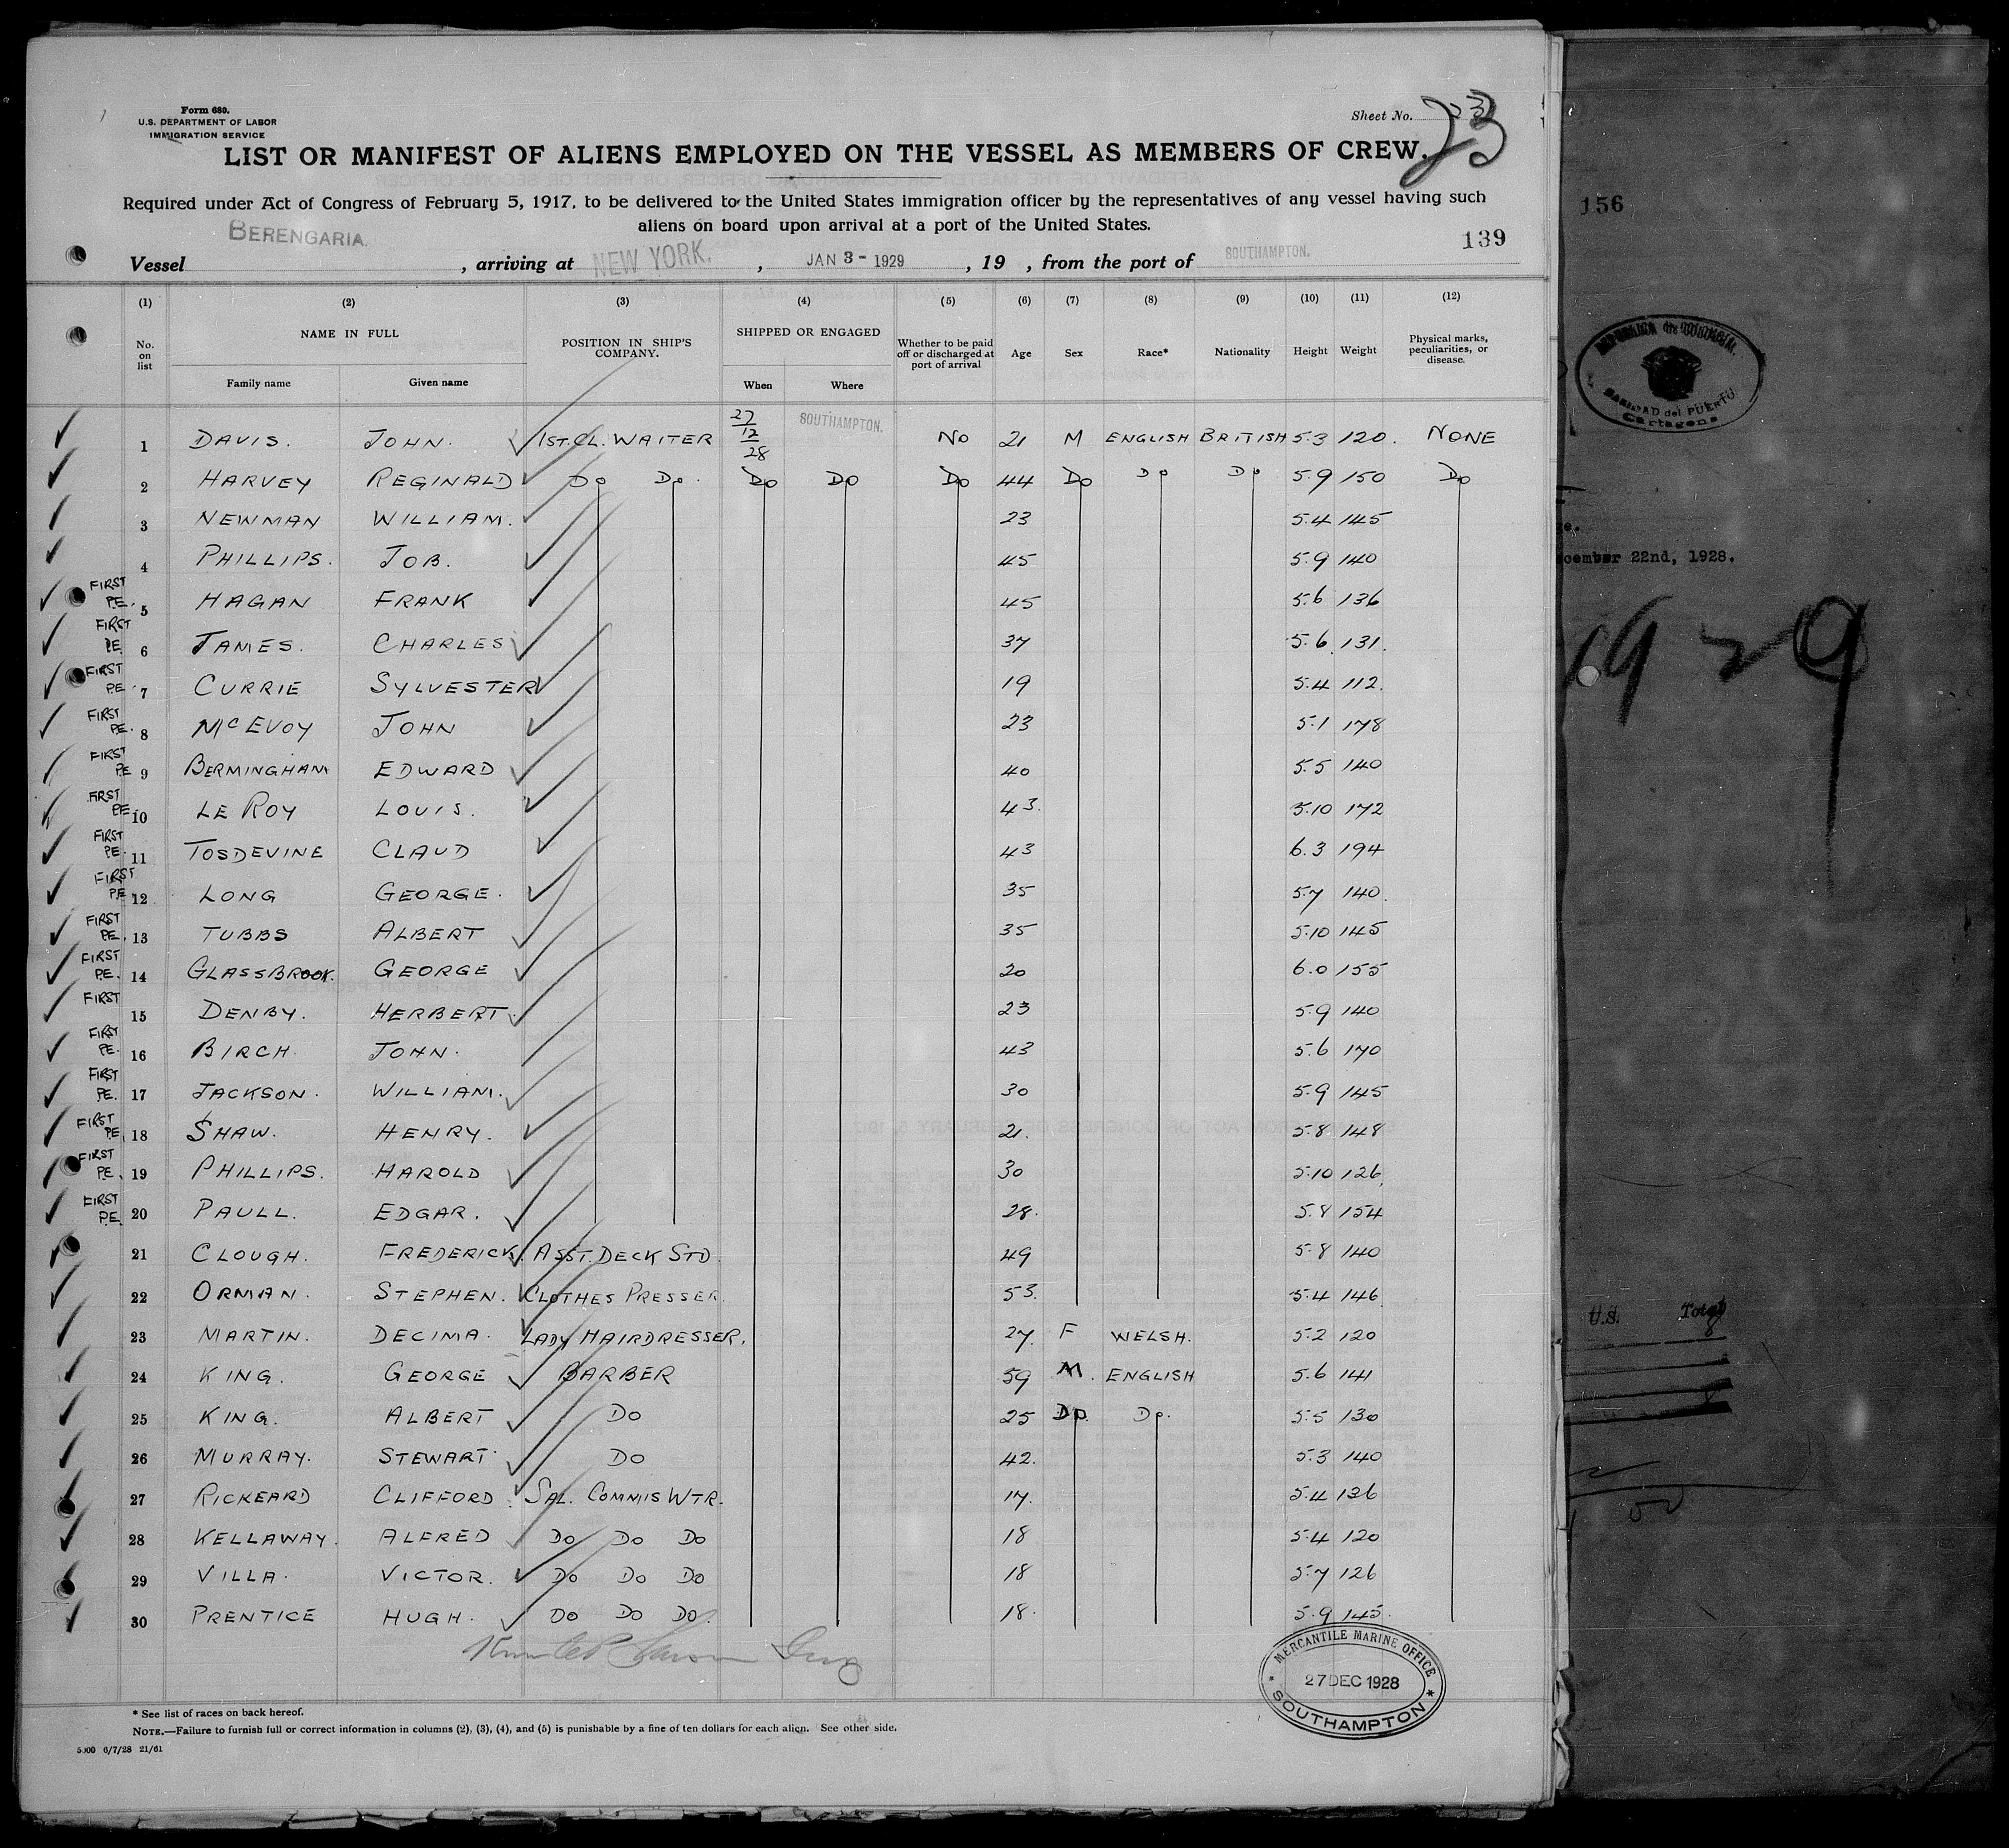 Form 680.
U.S. DEPARTMENT OF LABOR
IMMIGRATION SERVICE
Sheet No. 23
LIST OR MANIFEST OF ALIENS EMPLOYED ON THE VESSEL AS MEMBERS OF CREW.
Required under Act of Congress of February 5, 1917, to be delivered to the United States immigration officer by the representatives of any vessel having such
aliens on board upon arrival at a port of the United States.
139
Vessel BERENGARIA. , arriving at NEW YORK. , JAN 3 - 1929 , 19 , from the port of SOUTHAMPTON.
(1) (2) (3) (4) (5) (6) (7) (8) (9) (10) (11) (12)
No. on list NAME IN FULL Family name Given name POSITION IN SHIP'S COMPANY. SHIPPED OR ENGAGED When Where Whether to be paid off or discharged at port of arrival Age Sex Race* Nationality Height Weight Physical marks, peculiarities, or disease.
1 DAVIS. JOHN. 1ST. CL. WAITER 27/12/28 SOUTHAMPTON. NO 21 M ENGLISH BRITISH 5.3 120. NONE
2 HARVEY REGINALD DO DO. DO DO DO 44 DO DO DO 5.9 150 DO
3 NEWMAN WILLIAM. 23 5.4 145
4 PHILLIPS. JOB. 45 5.9 140
FIRST P.E. 5 HAGAN FRANK 45 5.6 136
FIRST P.E. 6 JAMES. CHARLES 37 5.6 131.
FIRST P.E. 7 CURRIE SYLVESTER 19 5.4 112.
FIRST P.E. 8 McEVOY JOHN 23 5.1 178
FIRST P.E. 9 BERMINGHAM EDWARD 40 5.5 140
FIRST P.E. 10 LE ROY LOUIS. 43. 5.10 172
FIRST P.E. 11 TOSDEVINE CLAUD 43 6.3 194
FIRST P.E. 12 LONG GEORGE. 35 5.7 140.
FIRST P.E. 13 TUBBS ALBERT 35 5.10 145
FIRST P.E. 14 GLASSBROOK. GEORGE 20 6.0 155
FIRST 15 DENBY. HERBERT. 23 5.9 140
FIRST P.E. 16 BIRCH. JOHN. 43 5.6 170
FIRST P.E. 17 JACKSON. WILLIAM. 30 5.9 145
FIRST P.E. 18 SHAW. HENRY. 21. 5.8 148
FIRST P.E. 19 PHILLIPS. HAROLD 30 5.10 126.
FIRST P.E. 20 PAULL. EDGAR. 28. 5.8 154
21 CLOUGH. FREDERICK. ASST. DECK STD. 49 5.8 140
22 ORMAN. STEPHEN. CLOTHES PRESSER. 53. 5.4 146.
23 MARTIN. DECIMA. LADY HAIRDRESSER. 27. F WELSH. 5.2 120
24 KING. GEORGE BARBER 59 M. ENGLISH 5.6 141
25 KING. ALBERT DO 25 DO. DO. 5.5 130
26 MURRAY. STEWART. DO 42. 5.3 140
27 RICKEARD CLIFFORD. SAL. COMMIS WTR. 17. 5.4 136
28 KELLAWAY. ALFRED DO DO DO 18 5.4 120
29 VILLA. VICTOR. DO DO DO 18 5.7 126
30 PRENTICE HUGH. DO DO DO. 18. 5.9 145.
MERCANTILE MARINE OFFICE
27 DEC 1928
SOUTHAMPTON
* See list of races on back hereof.
NOTE.—Failure to furnish full or correct information in columns (2), (3), (4), and (5) is punishable by a fine of ten dollars for each alien. See other side.
5000 6/7/28 21/61
156
SANIDAD del PUERTO
Cartagena
22nd, 1928.
1929
U.S. Total